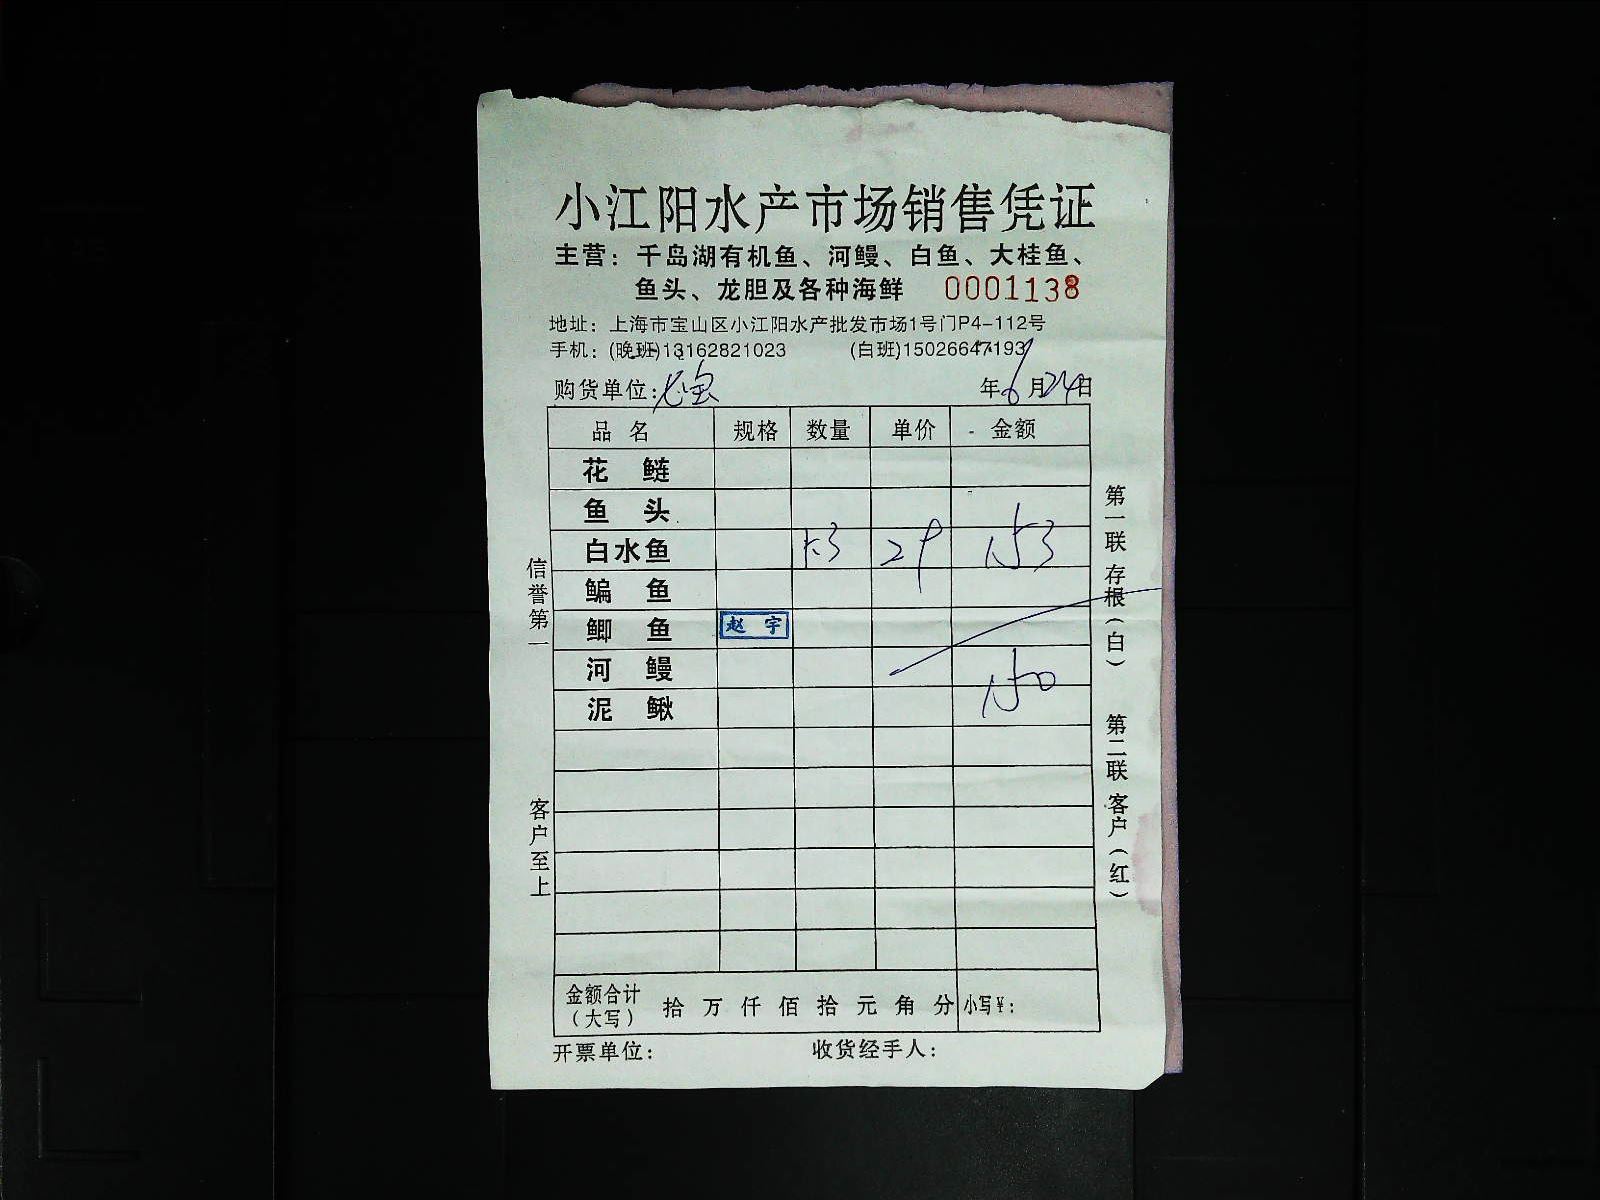 小江阳水产市场销售凭证
主营：千岛湖有机鱼、河鳗、白鱼、大桂鱼、
鱼头、龙胆及各种海鲜 0001138
地址：上海市宝山区小江阳水产批发市场1号门P4-112号
手机：(晚班)13162821023 (白班)15026647193
购货单位： 年6月24日
品名 规格 数量 单价 金额
花鲢
鱼头
白水鱼 5.3 29 153
鳊鱼
鲫鱼 赵宇
河鳗
150
泥鳅
金额合计（大写） 拾万仟佰拾元角分 小写¥：
开票单位： 收货经手人：
信誉第一
客户至上
第一联 存根（白）
第二联 客户（红）